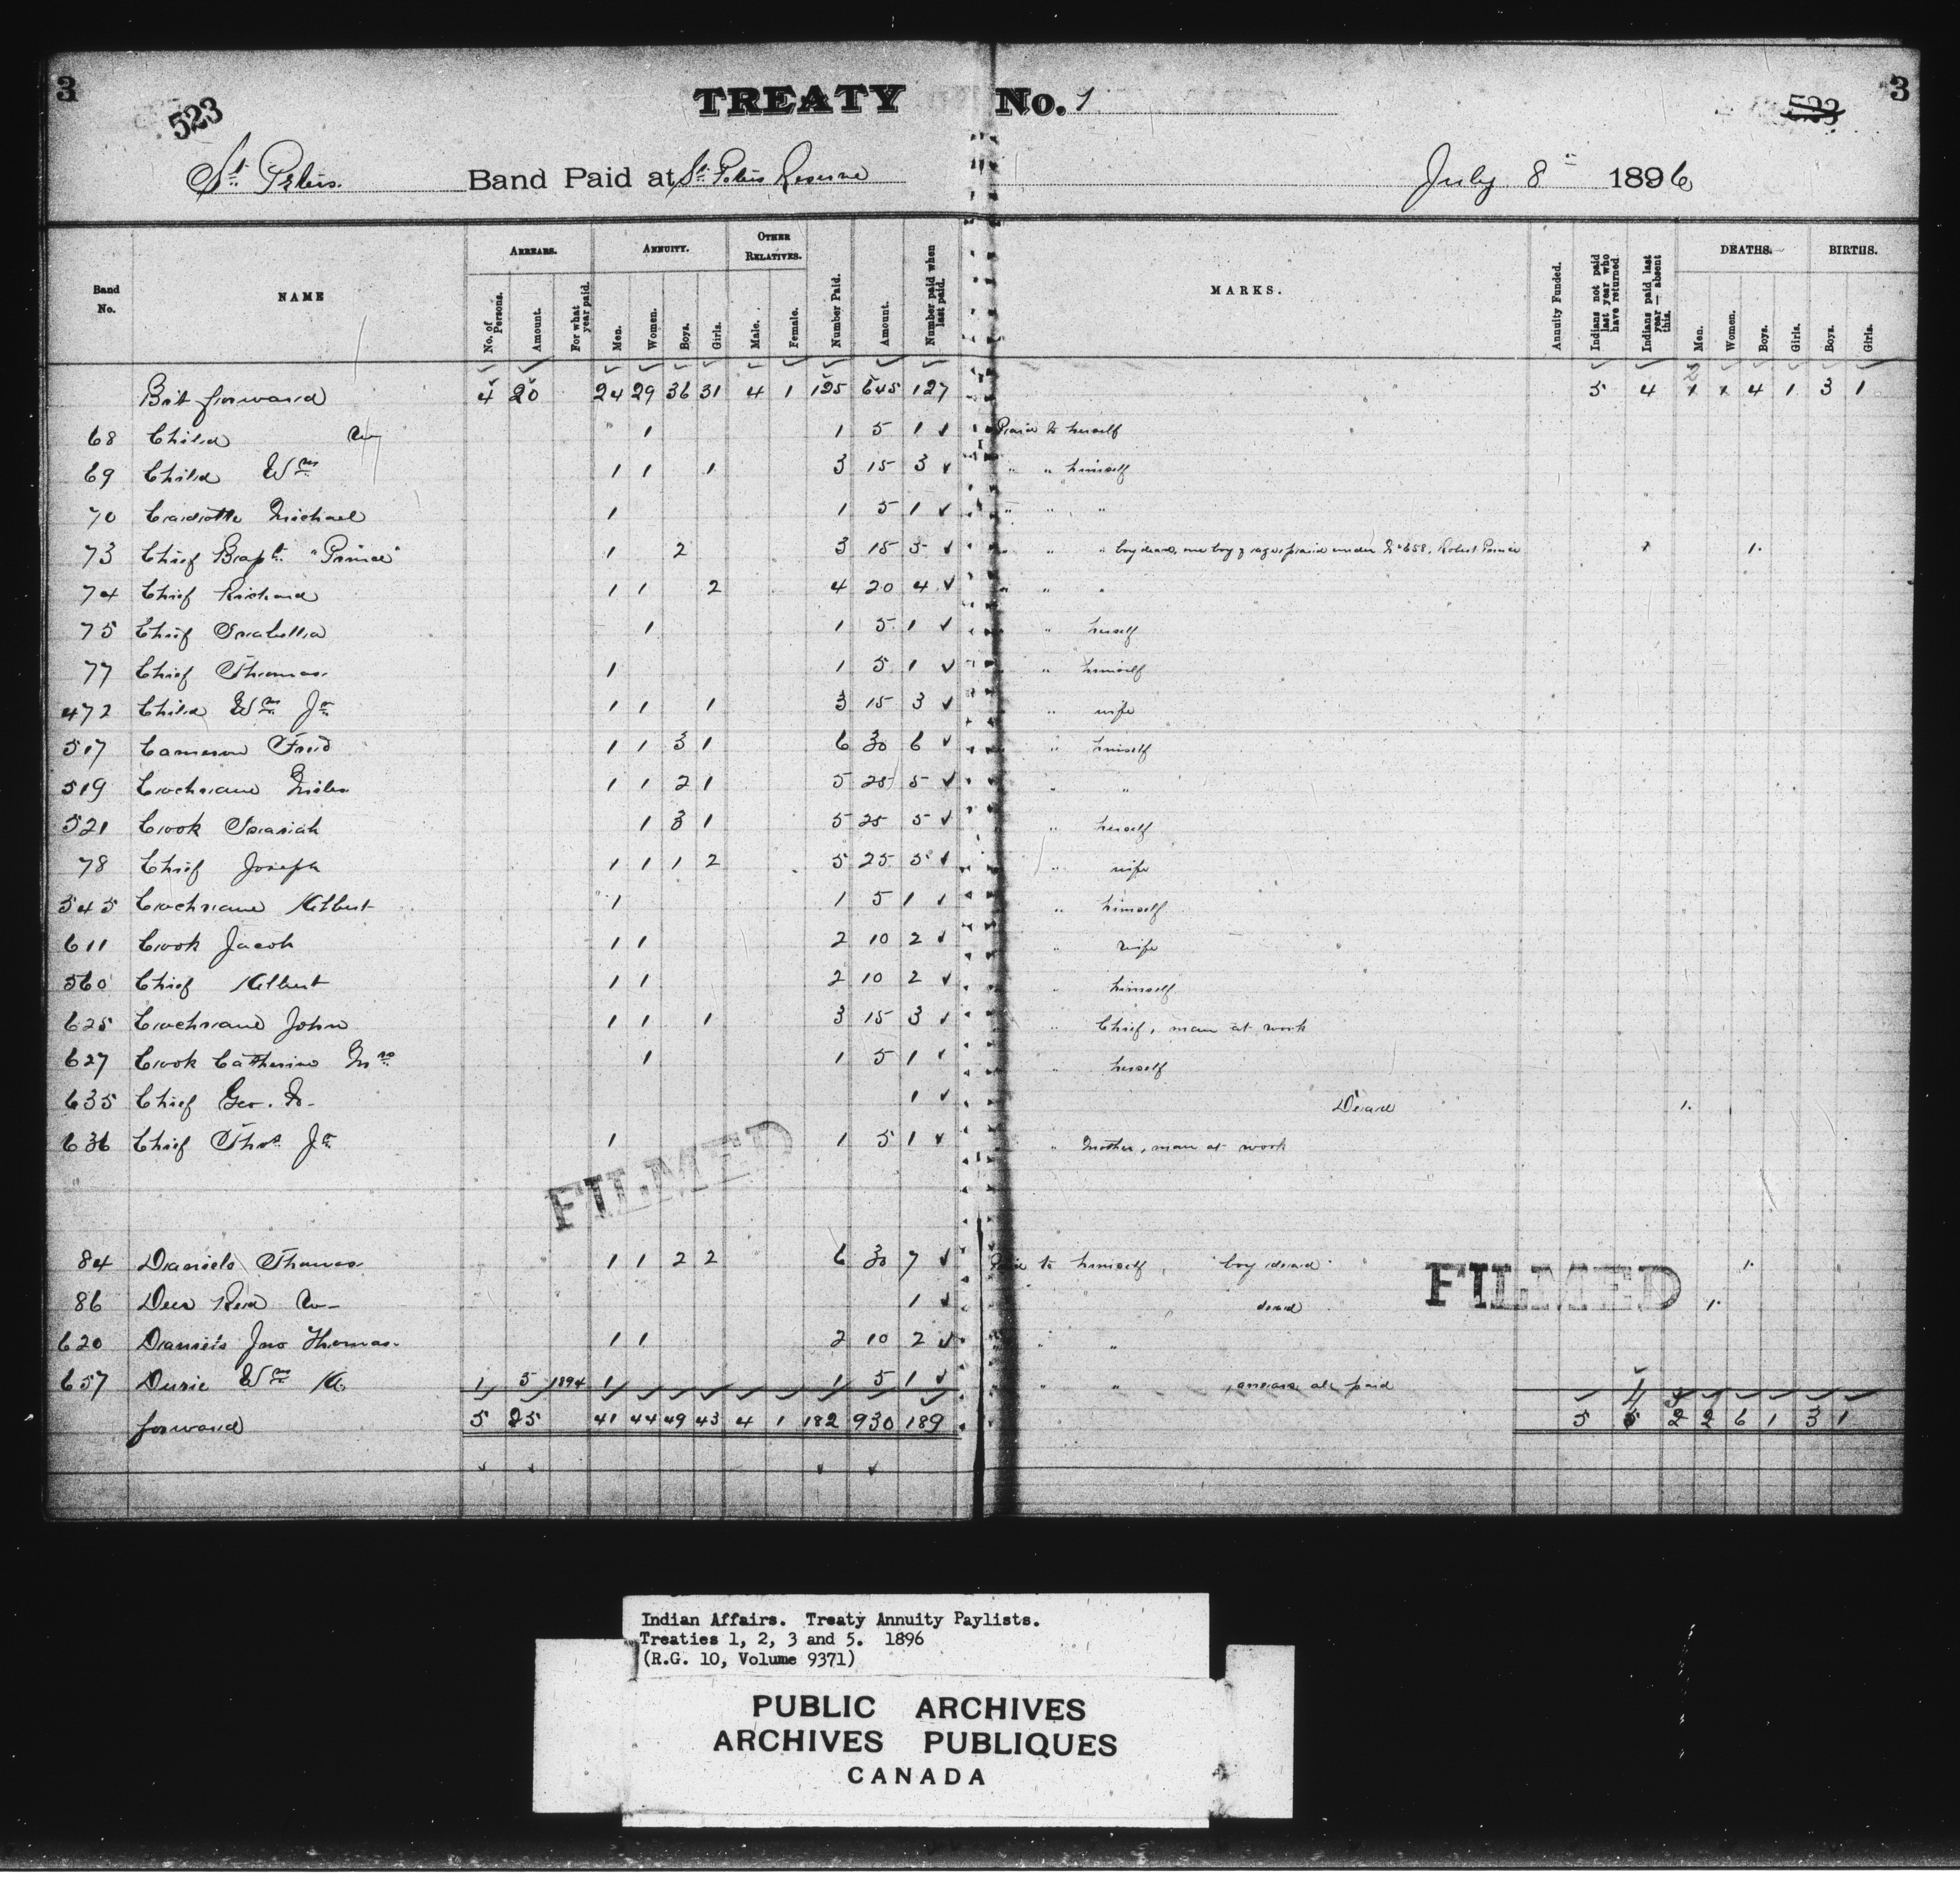 3 TREATY No. 1 3
523 523
St. Peters. Band Paid at St. Peters Reserve July 8th 1896
Band No. NAME ARREARS. ANNUITY. OTHER RELATIVES. Number Paid. Amount. Number paid when last paid. MARKS. Annuity Funded. Indians not paid last year who have returned. Indians paid last year — absent this. DEATHS. BIRTHS.
No. of Persons. Amount. For what year paid. Men. Women. Boys. Girls. Male. Female. Men. Women. Boys. Girls. Boys. Girls.
Brt forward 4 20 24 29 36 31 4 1 125 645 127 5 4 4 1 3 1
68 Child W 1 1 5 1 Paid to herself
69 Child Wm 1 1 1 3 15 3 " " himself
70 Michael 1 1 5 1 " " "
73 Chief Bapt. "Prince" 1 2 3 15 3 " " " boy dead, one boy paid under No 658, Robert Prince 1.
74 Chief Richard 1 1 2 4 20 4 " " "
75 Chief Isabella 1 1 5 1 " herself
77 Chief Thomas 1 1 5 1 " himself
472 Child Wm Jr 1 1 1 3 15 3 " wife
517 Cameron Fred 1 1 3 1 6 30 6 " himself
519 Cochrane Miles 1 1 2 1 5 25 5 " "
521 Cook 1 3 1 5 25 5 " herself
78 Chief Joseph 1 1 1 2 5 25 5 " wife
545 Cochrane Albert 1 1 5 1 " himself
611 Cook Jacob 1 1 2 10 2 " wife
560 Chief Albert 1 1 2 10 2 " himself
625 Cochrane John 1 1 1 3 15 3 " Chief, man at work
627 Cook Catherine Mrs 1 1 5 1 " herself
635 Chief Geo. 1 Dead 1.
636 Chief Thos Jr 1 1 5 1 " Mother, man at work
FILMED
84 Daniels Thomas 1 1 2 2 6 30 7 Paid to himself, boy dead 1.
FILMED
86 Deer Red W 1 dead 1.
620 Daniels Jno Thomas 1 1 2 10 2 " "
657 Wm A 1 5 1894 1 1 5 1 " " , arrears all paid
forward 5 25 41 44 49 43 4 1 182 930 189 5 4 2 2 6 1 3 1
Indian Affairs. Treaty Annuity Paylists.
Treaties 1, 2, 3 and 5. 1896
(R.G. 10, Volume 9371)
PUBLIC ARCHIVES
ARCHIVES PUBLIQUES
CANADA